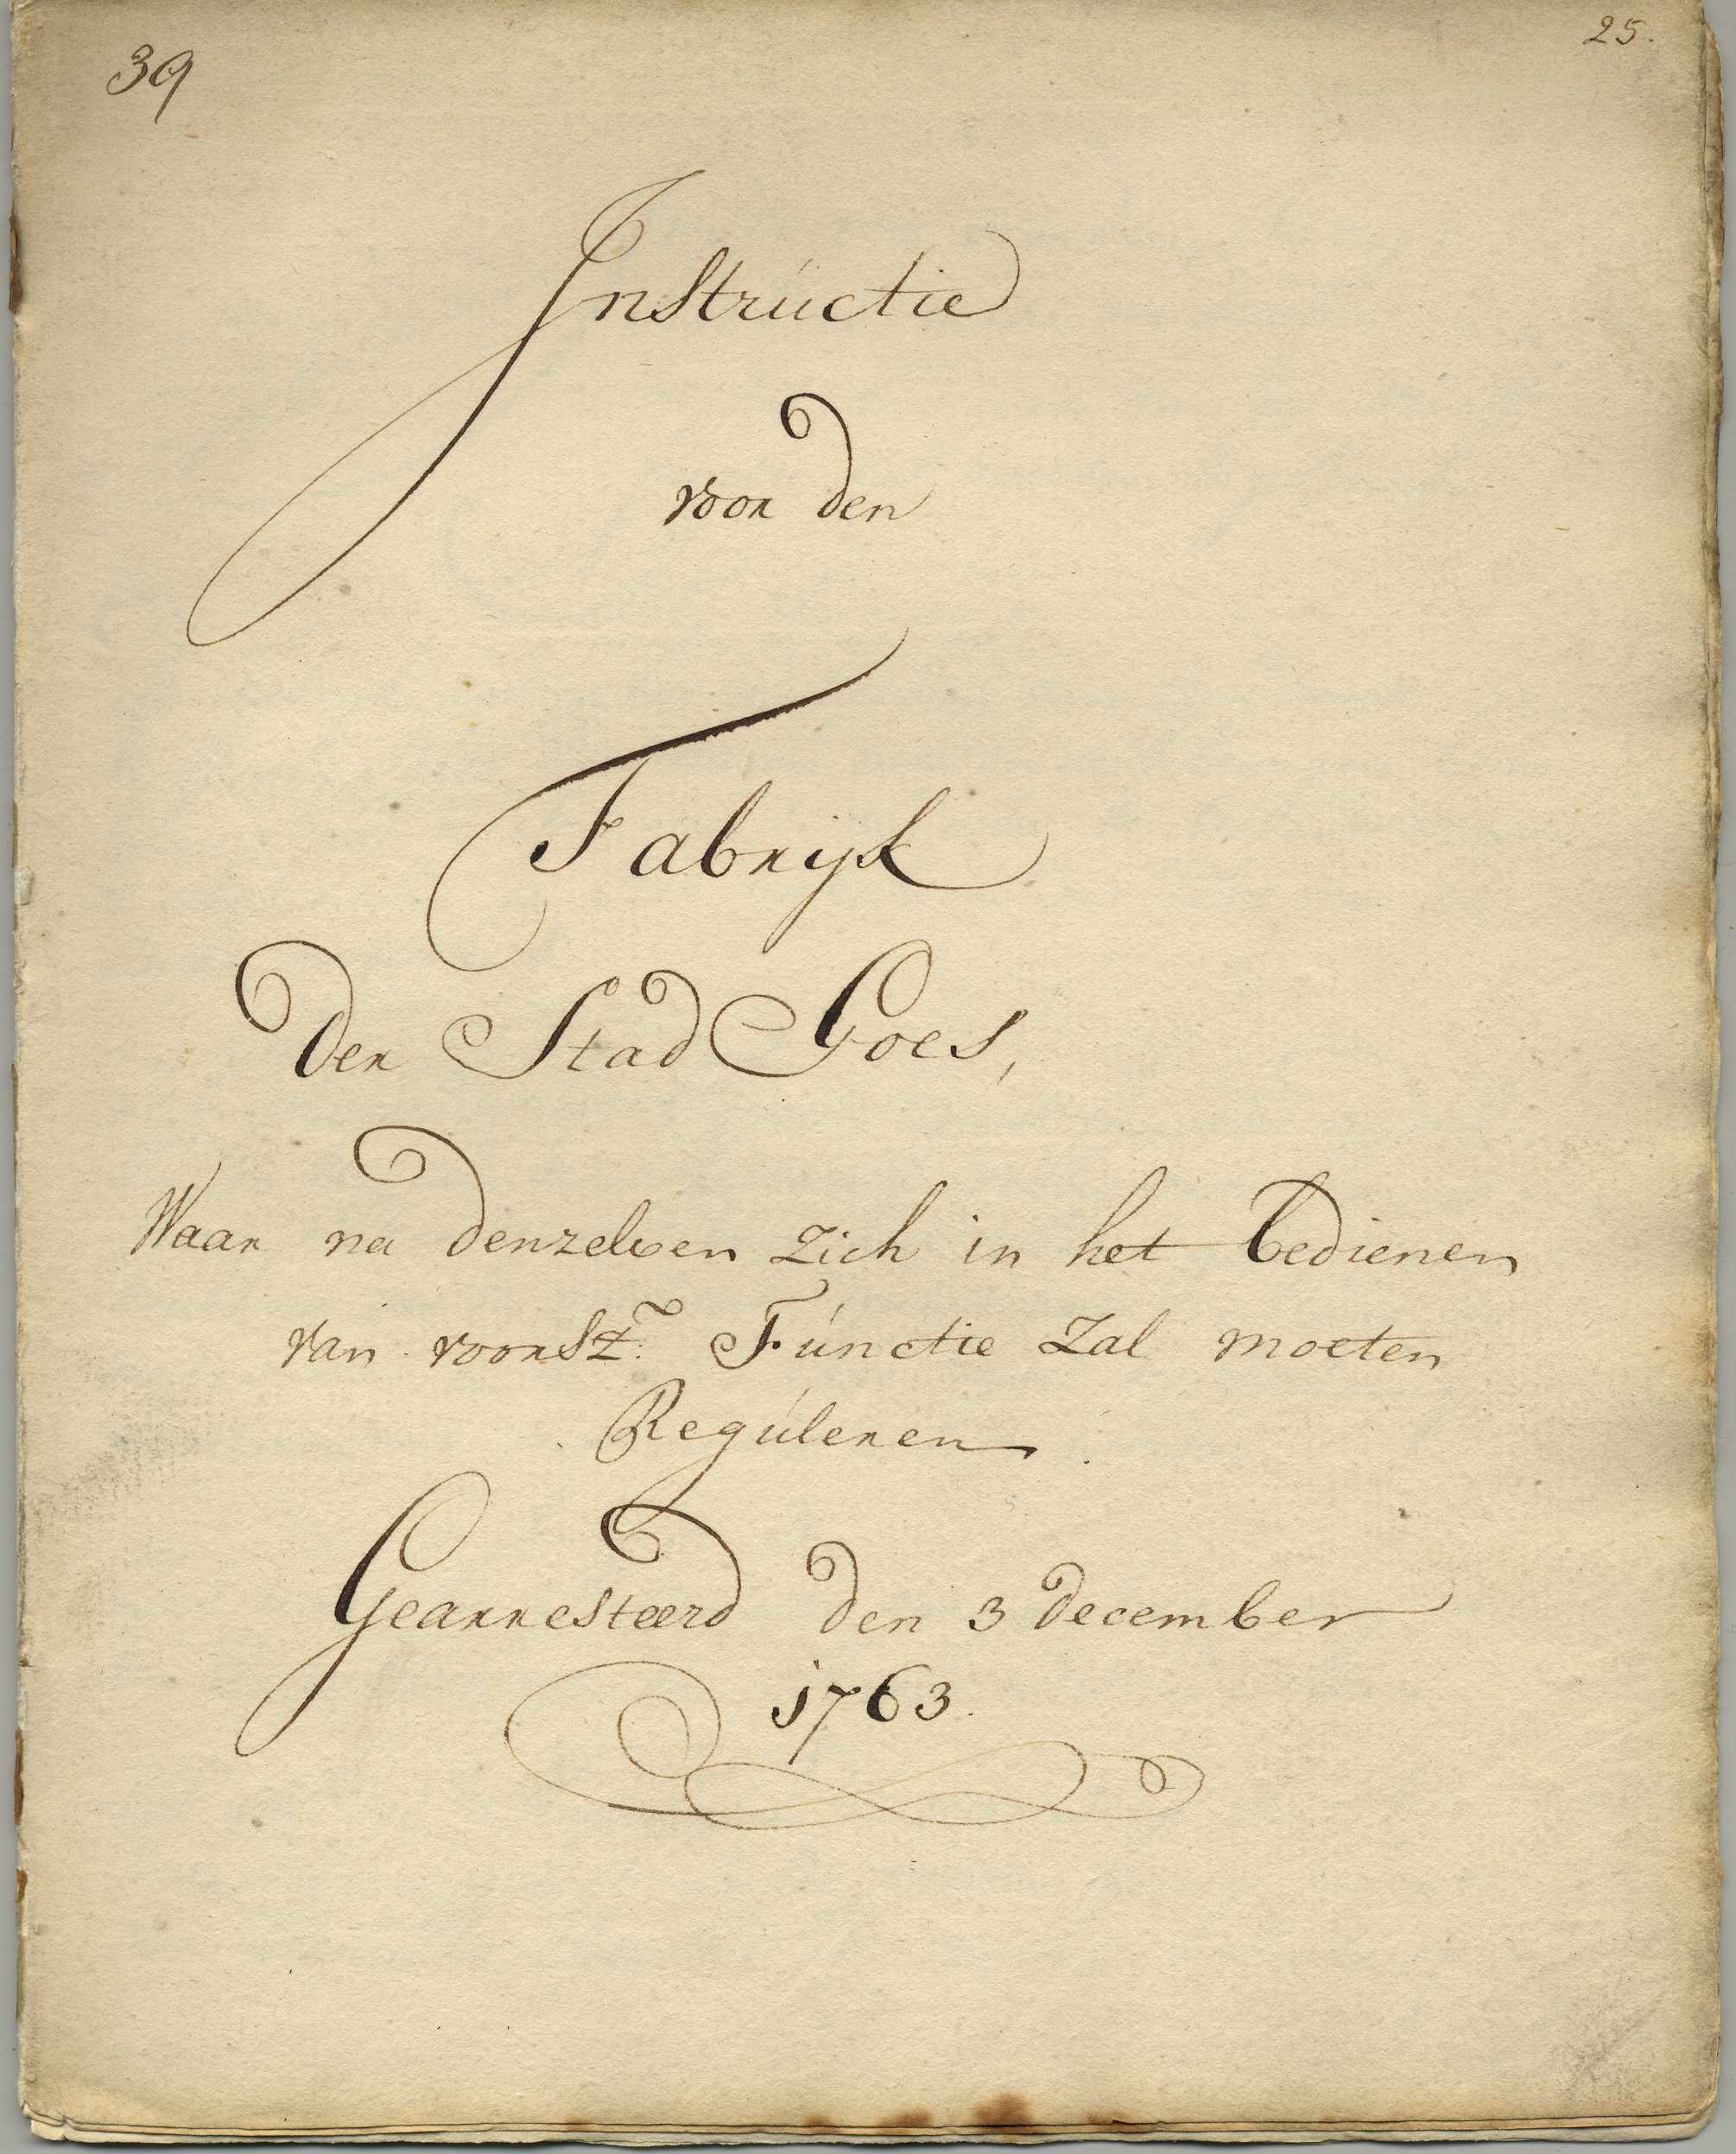 39
25.
Instructie
voor den
Fabryk
Der Stad Goes,
Waar na denzelven zich in het bedienen
van voorsz: Functie zal moeten
Reguleren.
Gearresteerd den 3 december
1763.